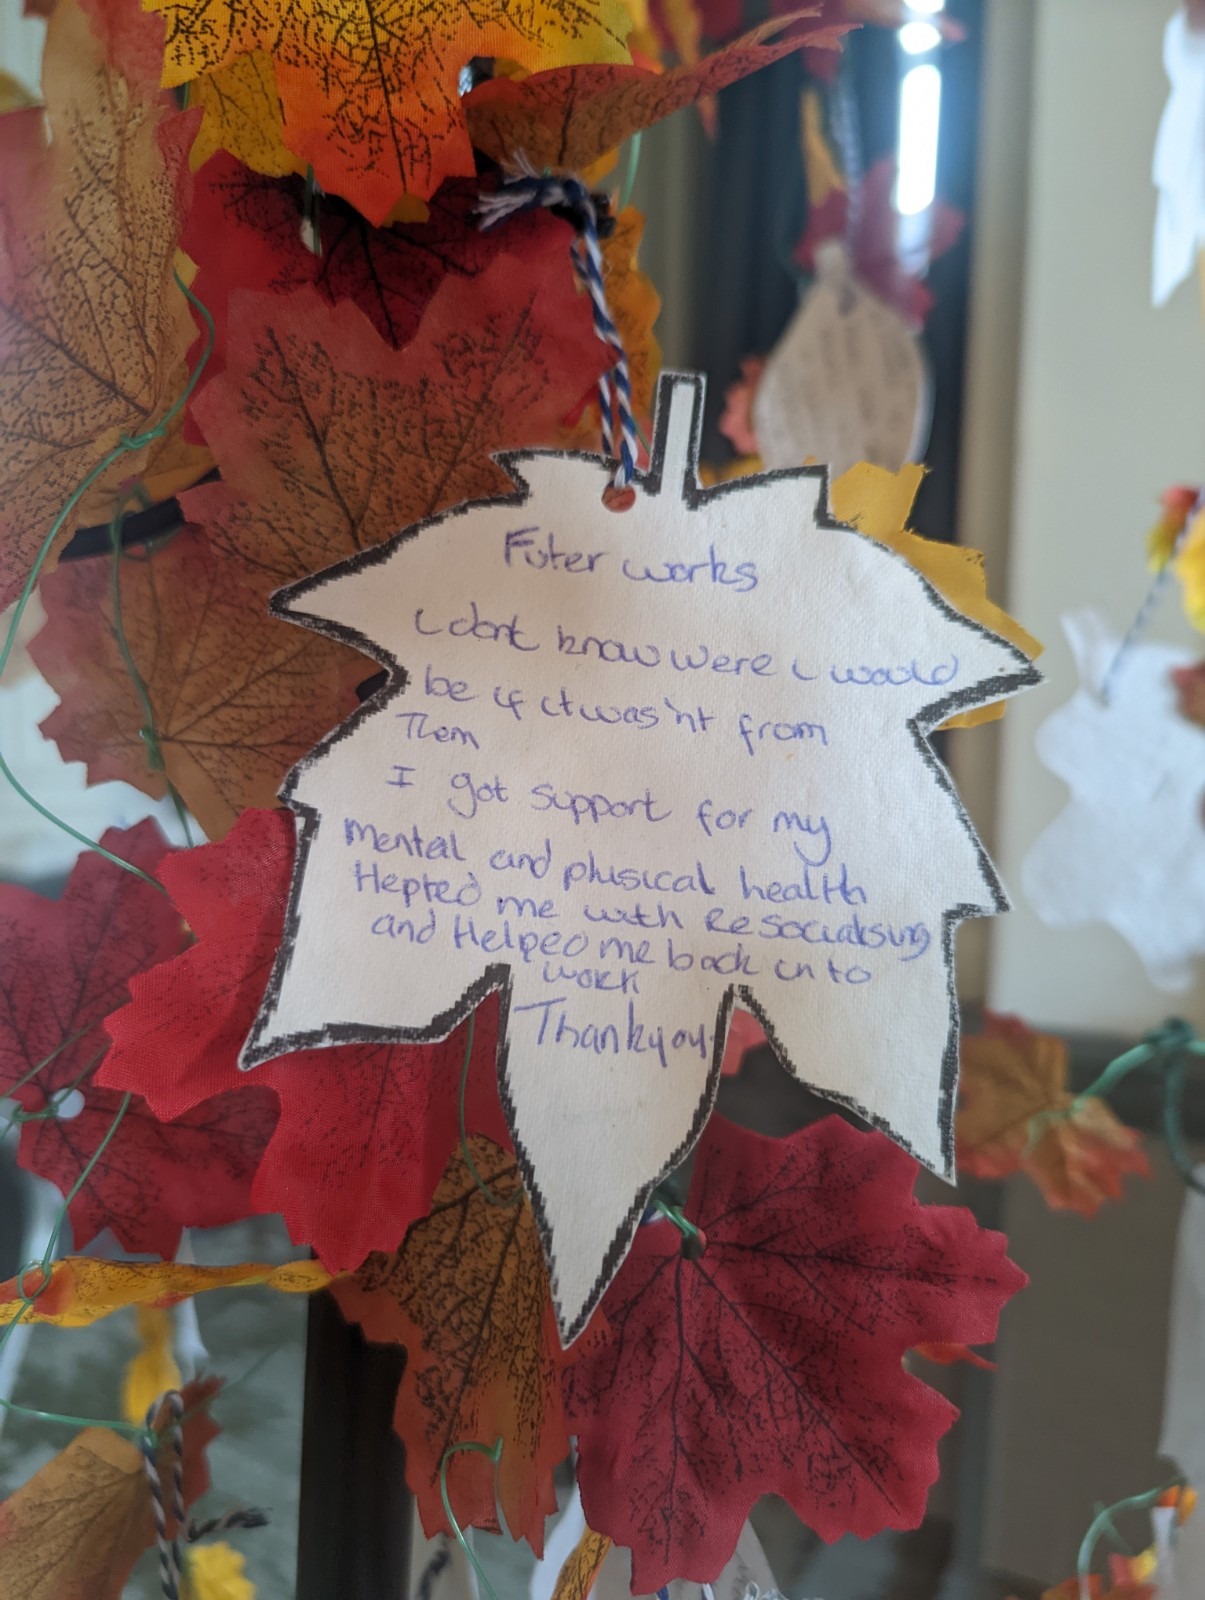 Futer works
I dont know were I would
be if it was'nt from
Them
I got support for my
Mental and phusical health
Hepted me with Resocialising
and Helped me back in to
work
Thankyou